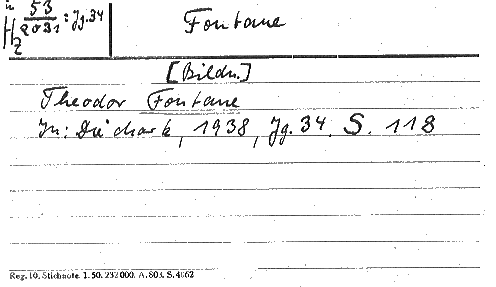 in
53
Hz 2031 : Jg. 34
Fontane
[Bildn.]
Theodor Fontane
In: Die 1938, Jg. 34. S. 118
Reg. 10. Stichnote. 1. 50. 232000. A. 803. S. 4662